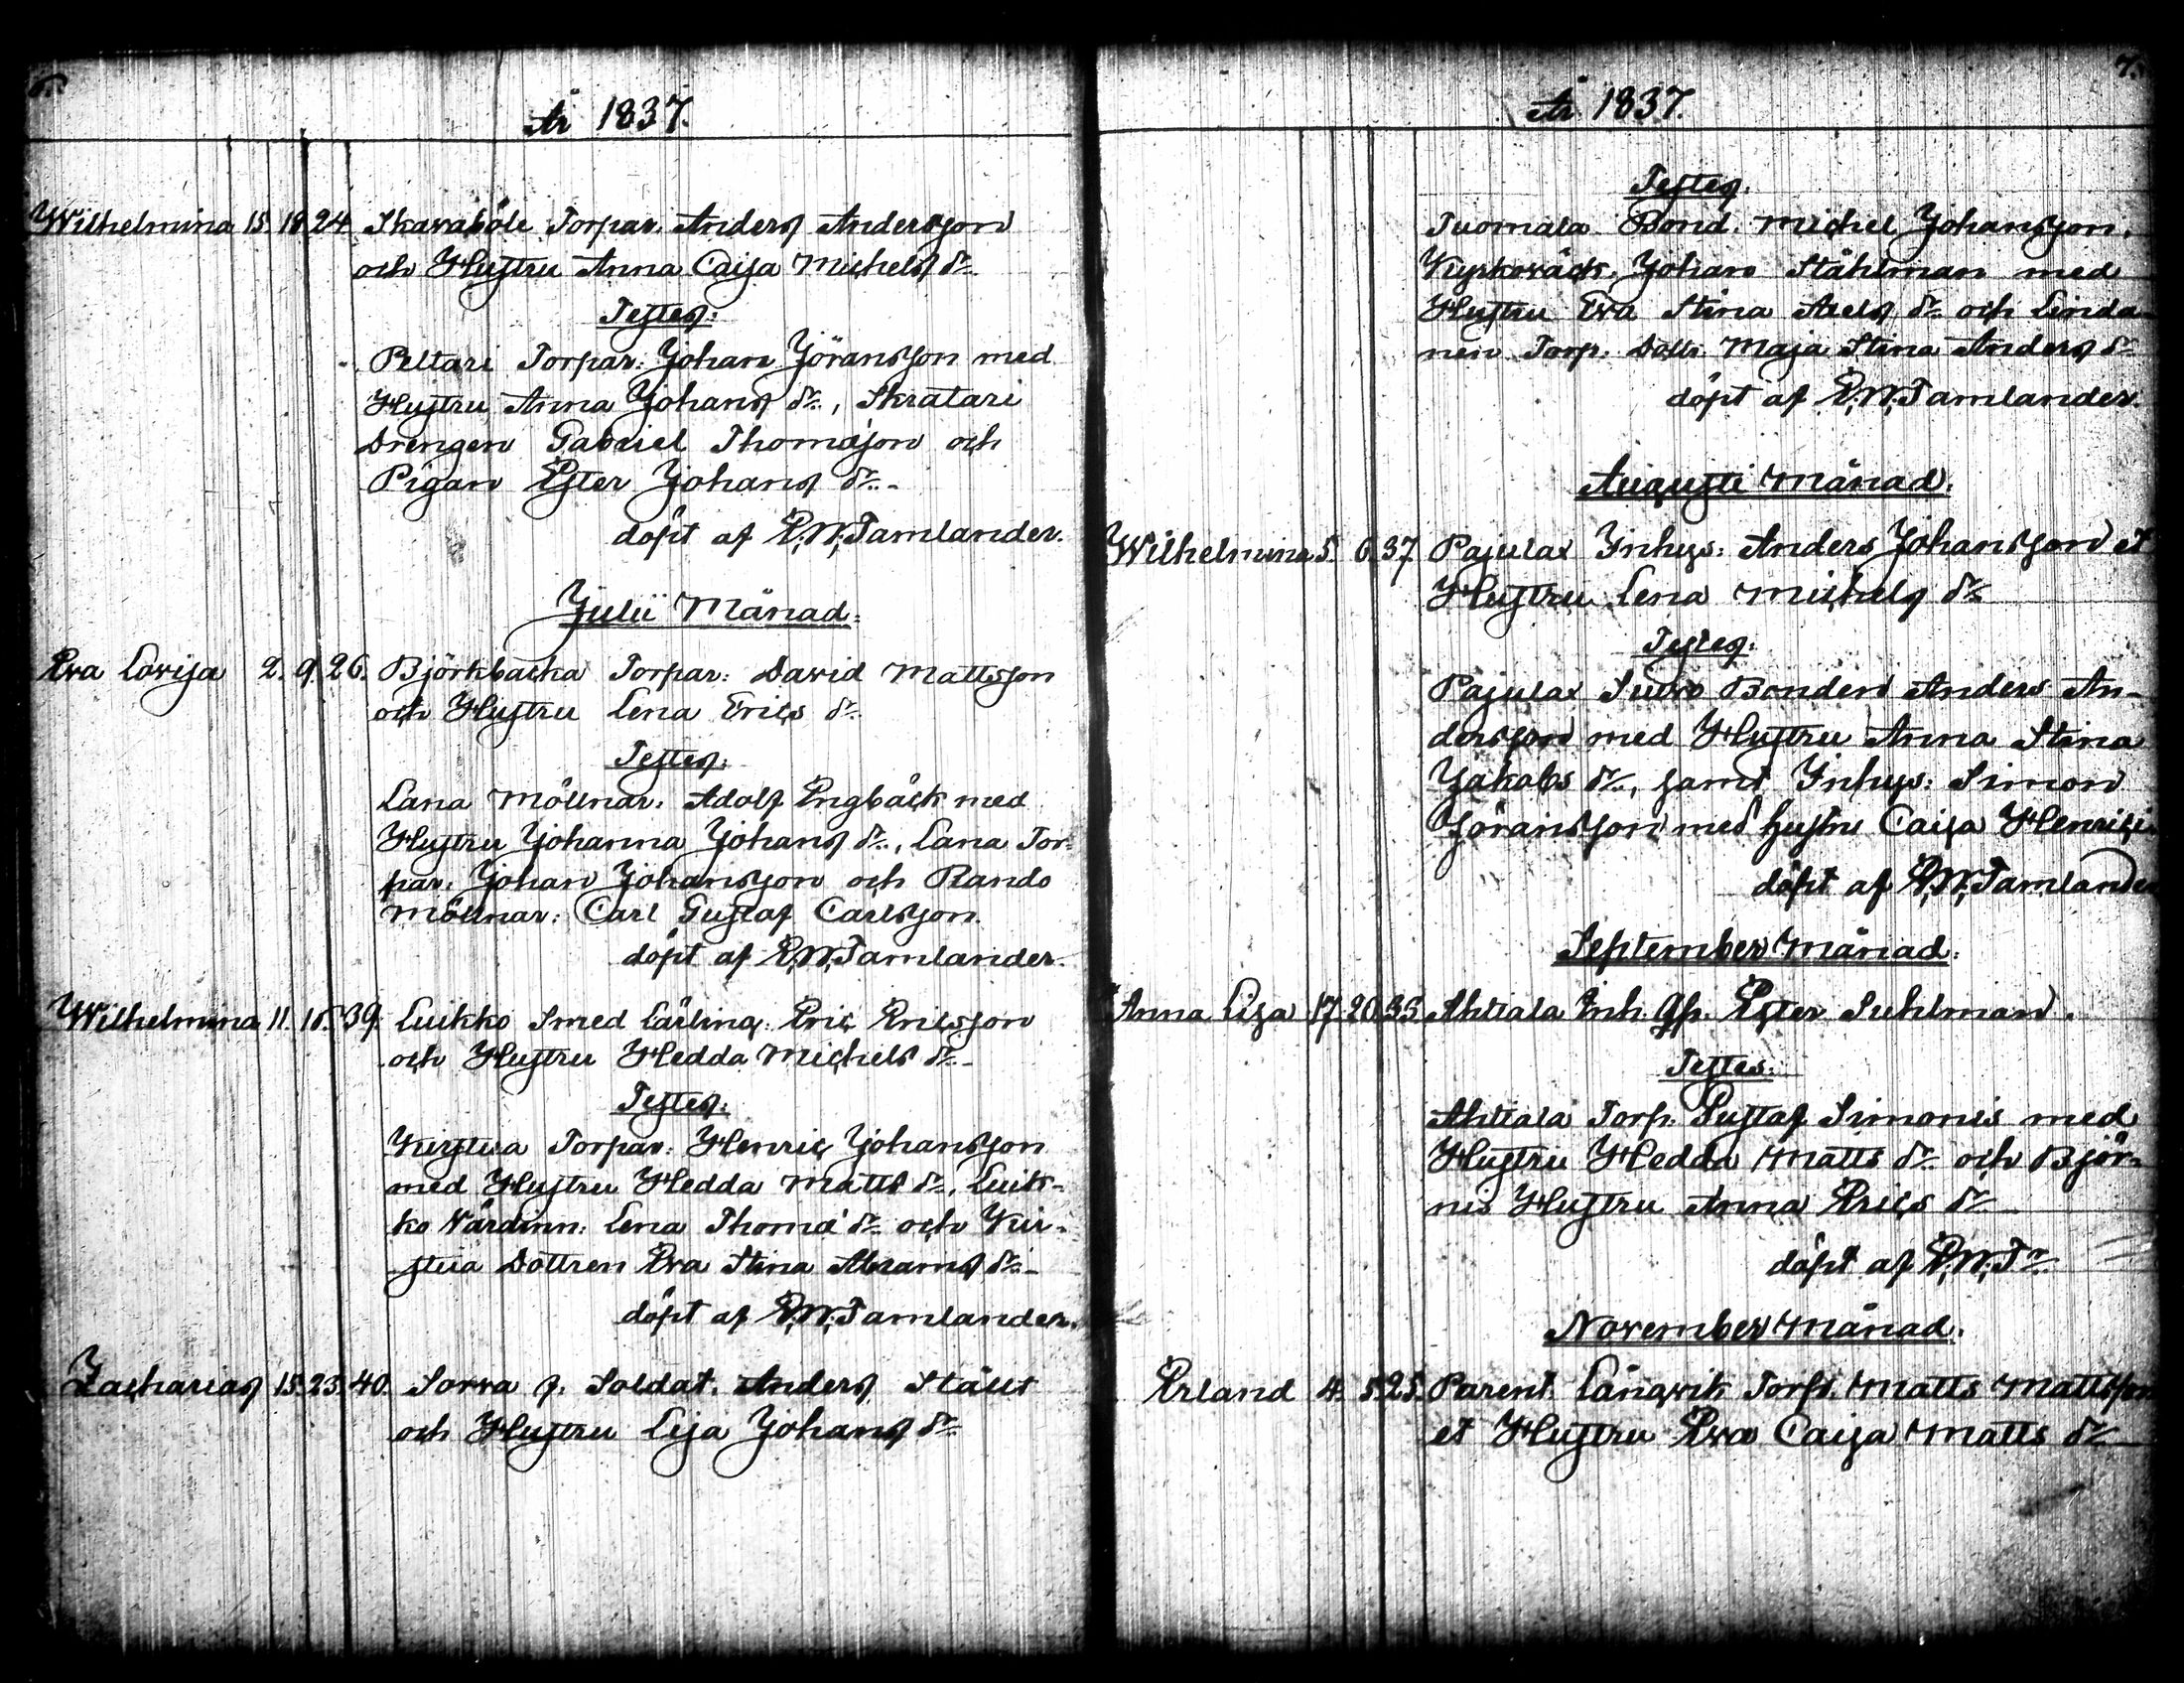 6.
År 1837.
Wilhelmina 15. 18. 24. Skavaböle Torpar. Anders Andersson
och Hustru Anna Caisa Michels dr.
Testes:
Peltari Torpar: Johan Jöransson med
Hustru Anna Johans dr., Skratari
Drengen Gabriel Thomæson och
Pigan Ester Johans dr.
döpt af E.W. Tamlander.
Julii Månad.
Eva Lovisa 2. 9. 26. Björkbacka Torpar: David Mattsson
och Hustru Lena Erics dr.
Testes:
Lana Möllnar. Adolf Engbäck med
Hustru Johanna Johans dr., Lana Tor-
par. Johan Johansson och Rando
Möllnar: Carl Gustaf Carlsson.
döpt af E.W. Tamlander.
Wilhelmina 11. 16. 39. Luikko Smed Lärling: Eric Ericsson
och Hustru Hedda Michels dr.
Testes:
Torpar: Henric Johansson
med Hustru Hedda Matts dr., Luik-
ko Värdinn: Lena Thomæ dr. och
Dottren Eva Stina Abrams dr.
döpt af E.W. Tamlander.
Zacharias 15. 23. 40. Sorva f. Soldat. Anders Ståhl
och Hustru Lisa Johans dr.
7.
År 1837.
Testes.
Tuomala Bond. Michel Johansson,
Kyrkoväckt. Johan Ståhlman med
Hustru Eva Stina Axels dr. och Linda-
nen Torp. Dottr. Maja Stina Anders dr.
döpt af E.W. Tamlander.
Augusti Månad.
Wilhelmina 5. 6. 37. Pajulax Inhys: Anders Johansson et
Hustru Lena Michels dr.
Testes:
Pajulax Bonden Anders An-
dersson med Hustru Anna Stina
Jakobs dr., samt Inhys: Simon
Jöransson med hustru Caisa Henrici
döpt af E.W. Tamlander
September Månad.
Anna Lisa 17. 20. 35. Ahtiala Inh. Qp. Ester Suhlman.
Testes:
Ahtiala Torp. Gustaf Simonis med
Hustru Hedda Matts dr. och Björ-
nis Hustru Anna Erics dr.
döpt af E.W. Tr.
November Månad.
Erland 4. 5. 25. Parent. Långvik Torp. Matts Mattsson
et Hustru Eva Caisa Matts dr.